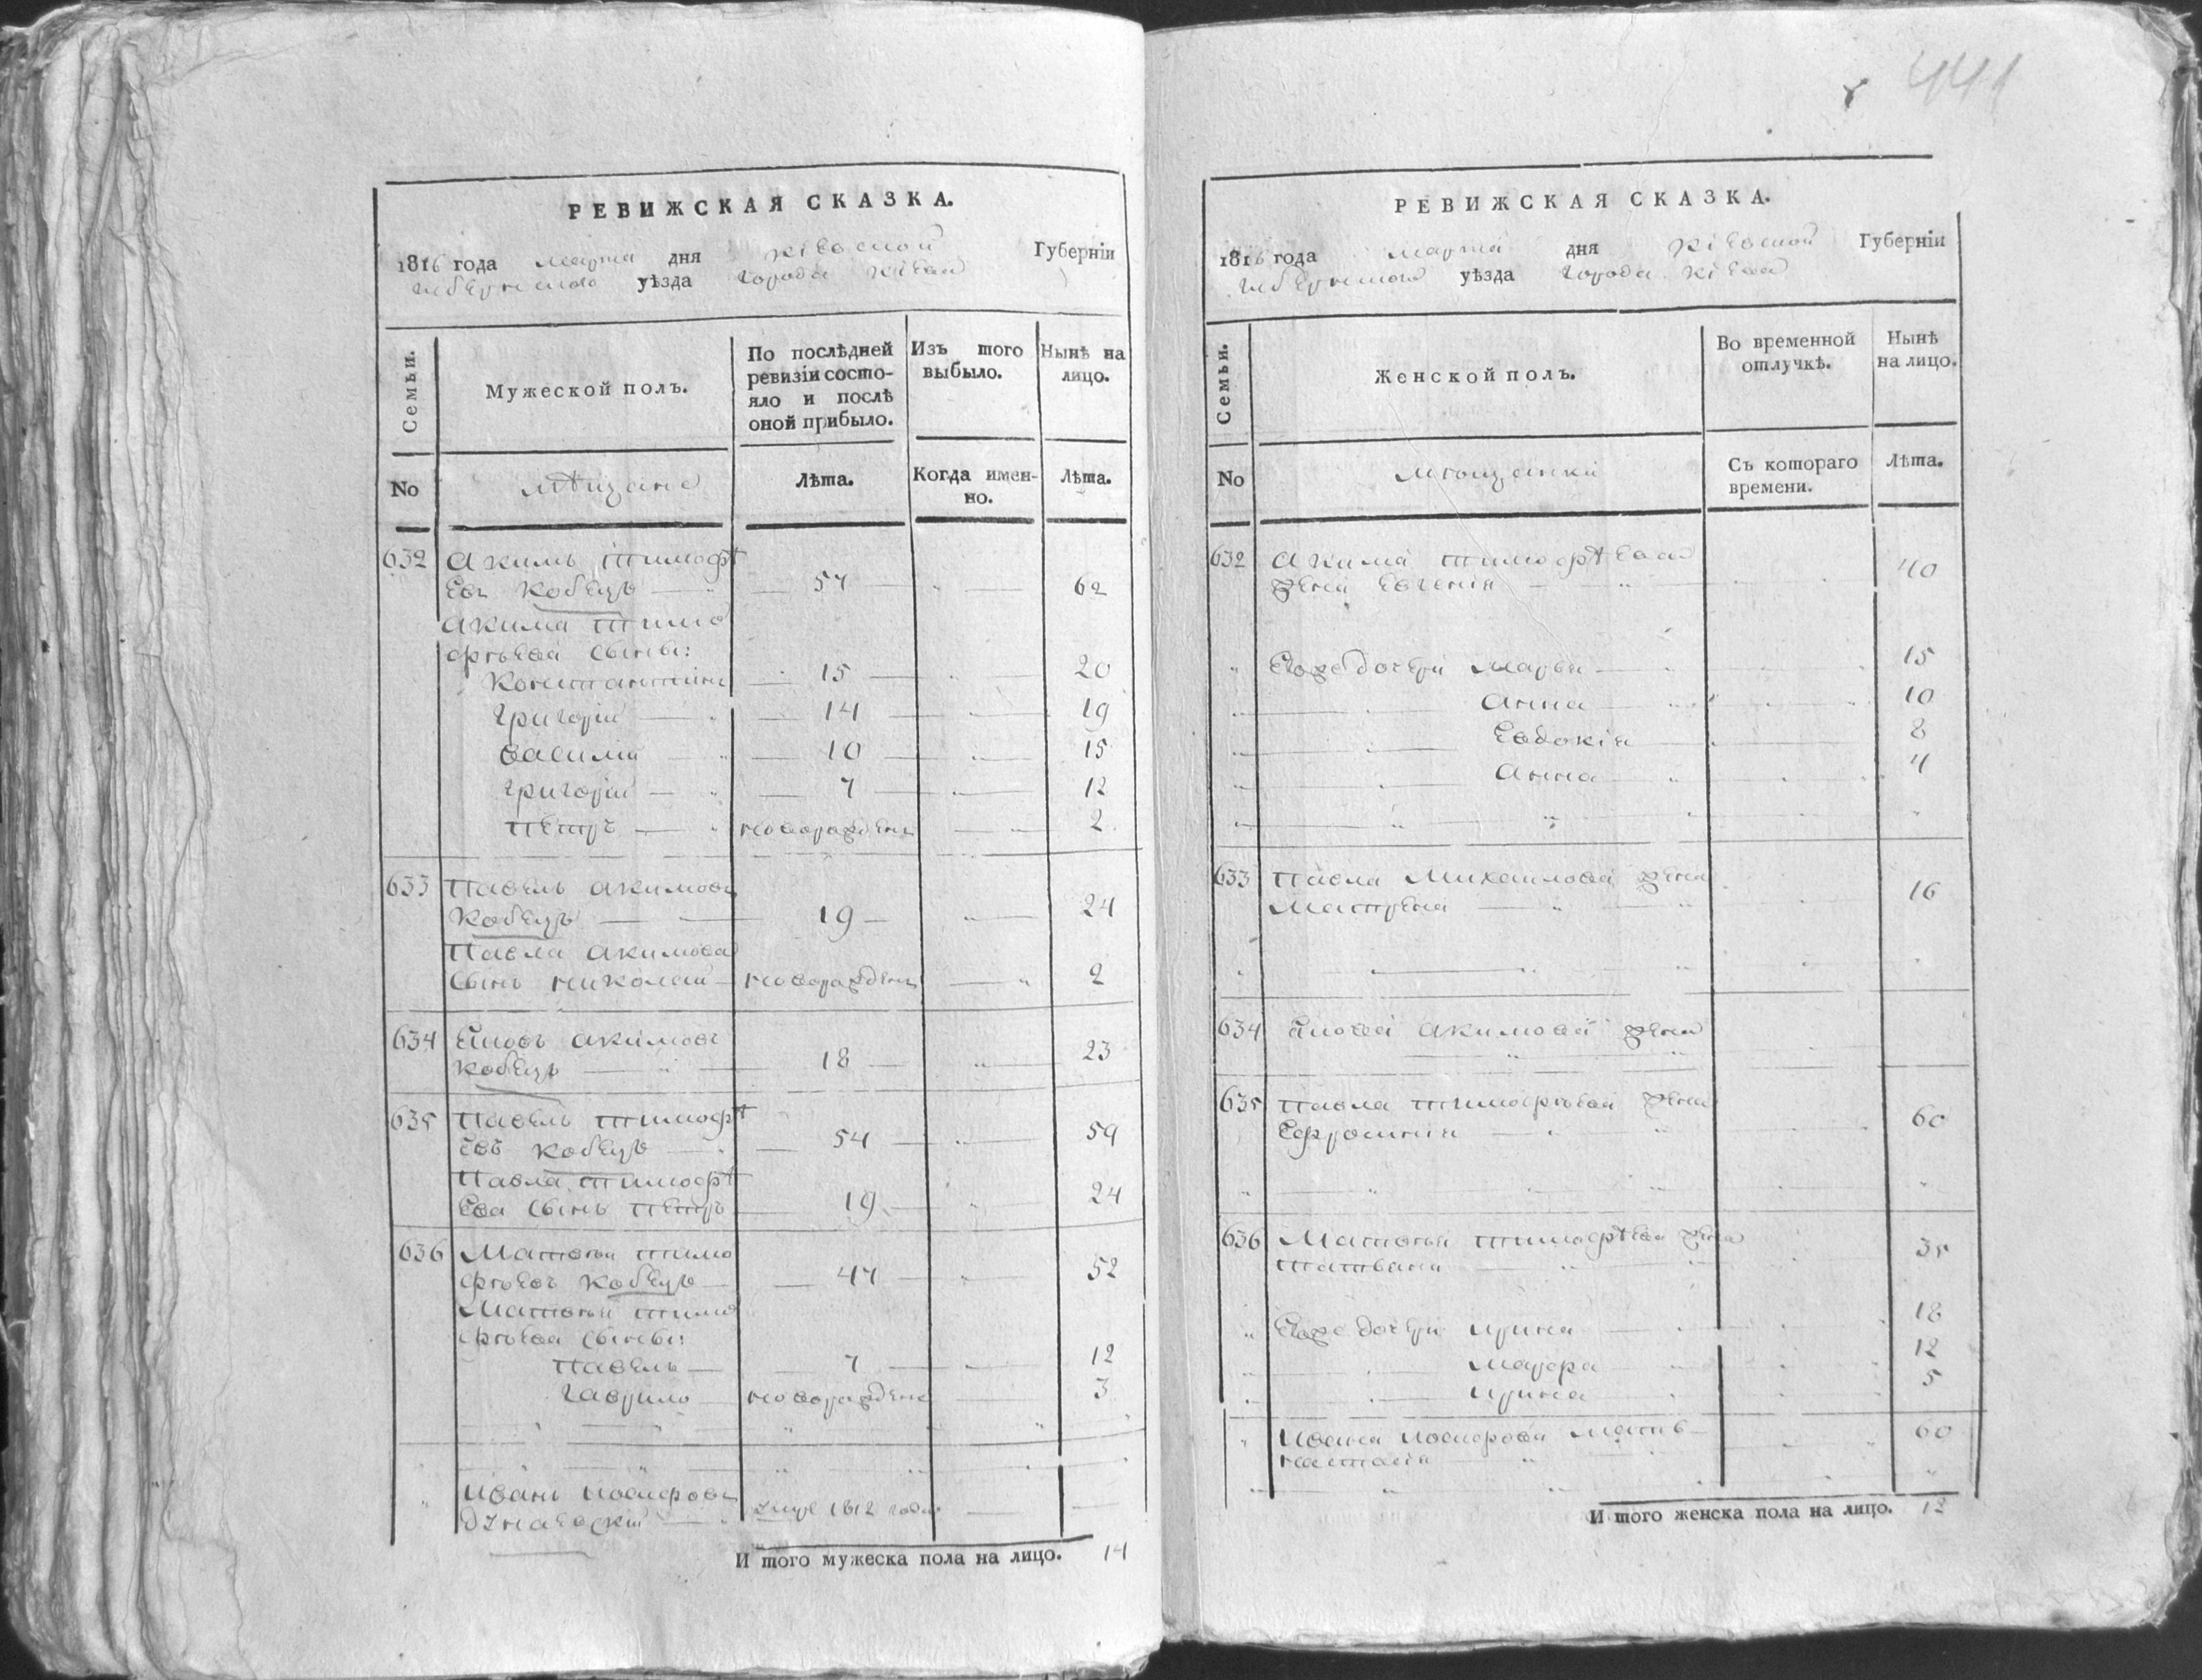 441
РЕВИЖСКАЯ СКАЗКА.
1816 года марта дня Кіевской Губерніи
уѣзда Города Кіева
Семьи.
Мужеской полъ.
По послѣдней ревизіи состояло и послѣ оной прибыло.
Изъ того выбыло.
Нынѣ на лицо.
No
мѣщане
Лѣта.
Когда именно.
Лѣта.
632 Акимъ Тимофѣ
евъ Кобецъ 57 62
Акима Тимо
фѣева сыны:
Константинъ 15 20
Григорій 14 19
Василій 10 15
Григорій 7 12
Петръ новорожденъ 2
633 Павелъ Акимовъ
Кобецъ 19 24
Павла Акимова
сынъ Николай новорожденъ 2
634 Акимовъ
Кобецъ 18 23
635 Павелъ Тимофѣ
евъ Кобецъ 54 59
Павла Тимофѣ
ева сынъ Петръ 19 24
636 Матвѣй Тимо
фѣевъ Кобецъ 47 52
Матвѣя Тимо
фѣева сыны:
Павелъ 7 12
Гаврило новорожденъ 3
Иванъ Иосифовъ
1812 года
И того мужеска пола на лицо. 14
РЕВИЖСКАЯ СКАЗКА.
1816 года марта дня Кіевской Губерніи
уѣзда Города Кіева
Семьи.
Женской полъ.
Во временной отлучкѣ.
Нынѣ на лицо.
No
мѣщанки
Съ котораго времени.
Лѣта.
632 Акима Тимофѣева
жена Евгенія 40
Егоже дочери Марья 15
Анна 10
Евдокія 8
Анна 4
633 Павла Михайлова жена
Матрена 16
634 Акимова жена
635 Павла Тимофѣева жена
Ефросинія 60
636 Матвѣя Тимофѣева жена
Татьяна 35
Егоже дочери Ирина 18
Мавра 12
Ирина 5
Ивана Иосифова мать 60
Настасія
И того женска пола на лицо. 12